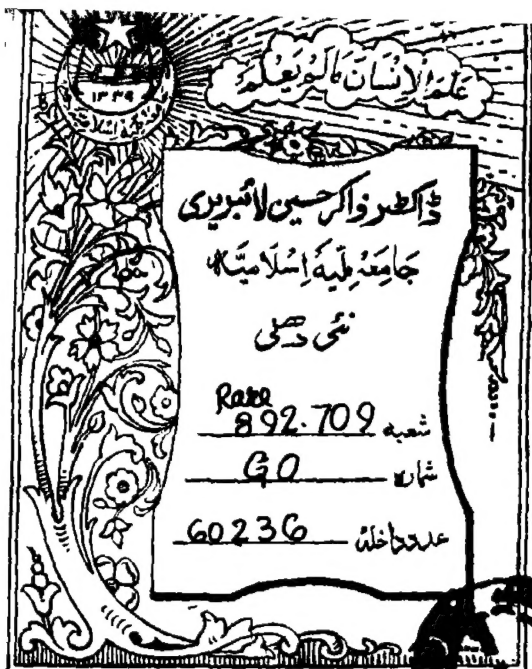 عَلَّمَ الْاِنْسَانَ مَالَمْ يَعْلَمْ
۱۳۳۹
ڈاکٹر ذاکر حسین لائبریری
جَامعَہ مِلّیہ اِسْلَامیّہ
نئی دھلی
Rare
شعبہ 892.709
شمارہ GO
عدد داخلہ 60236